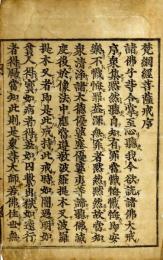 梵網經菩薩戒序
諸佛子等合掌至心聽我今欲說諸佛大戒
序衆集默然聽自知有罪當懺悔懺悔即安
樂不懺悔罪益深無罪者默然默然故當知
衆清淨諸大德優婆塞優婆夷等諦聽佛滅
度後於像法中應當尊敬波羅提木叉波羅
提木叉者即是此戒持此戒時如暗遇明如
貧人得寶如病者得差如囚繫出獄如遠行
者得歸當知此則是衆等大師若佛住世無